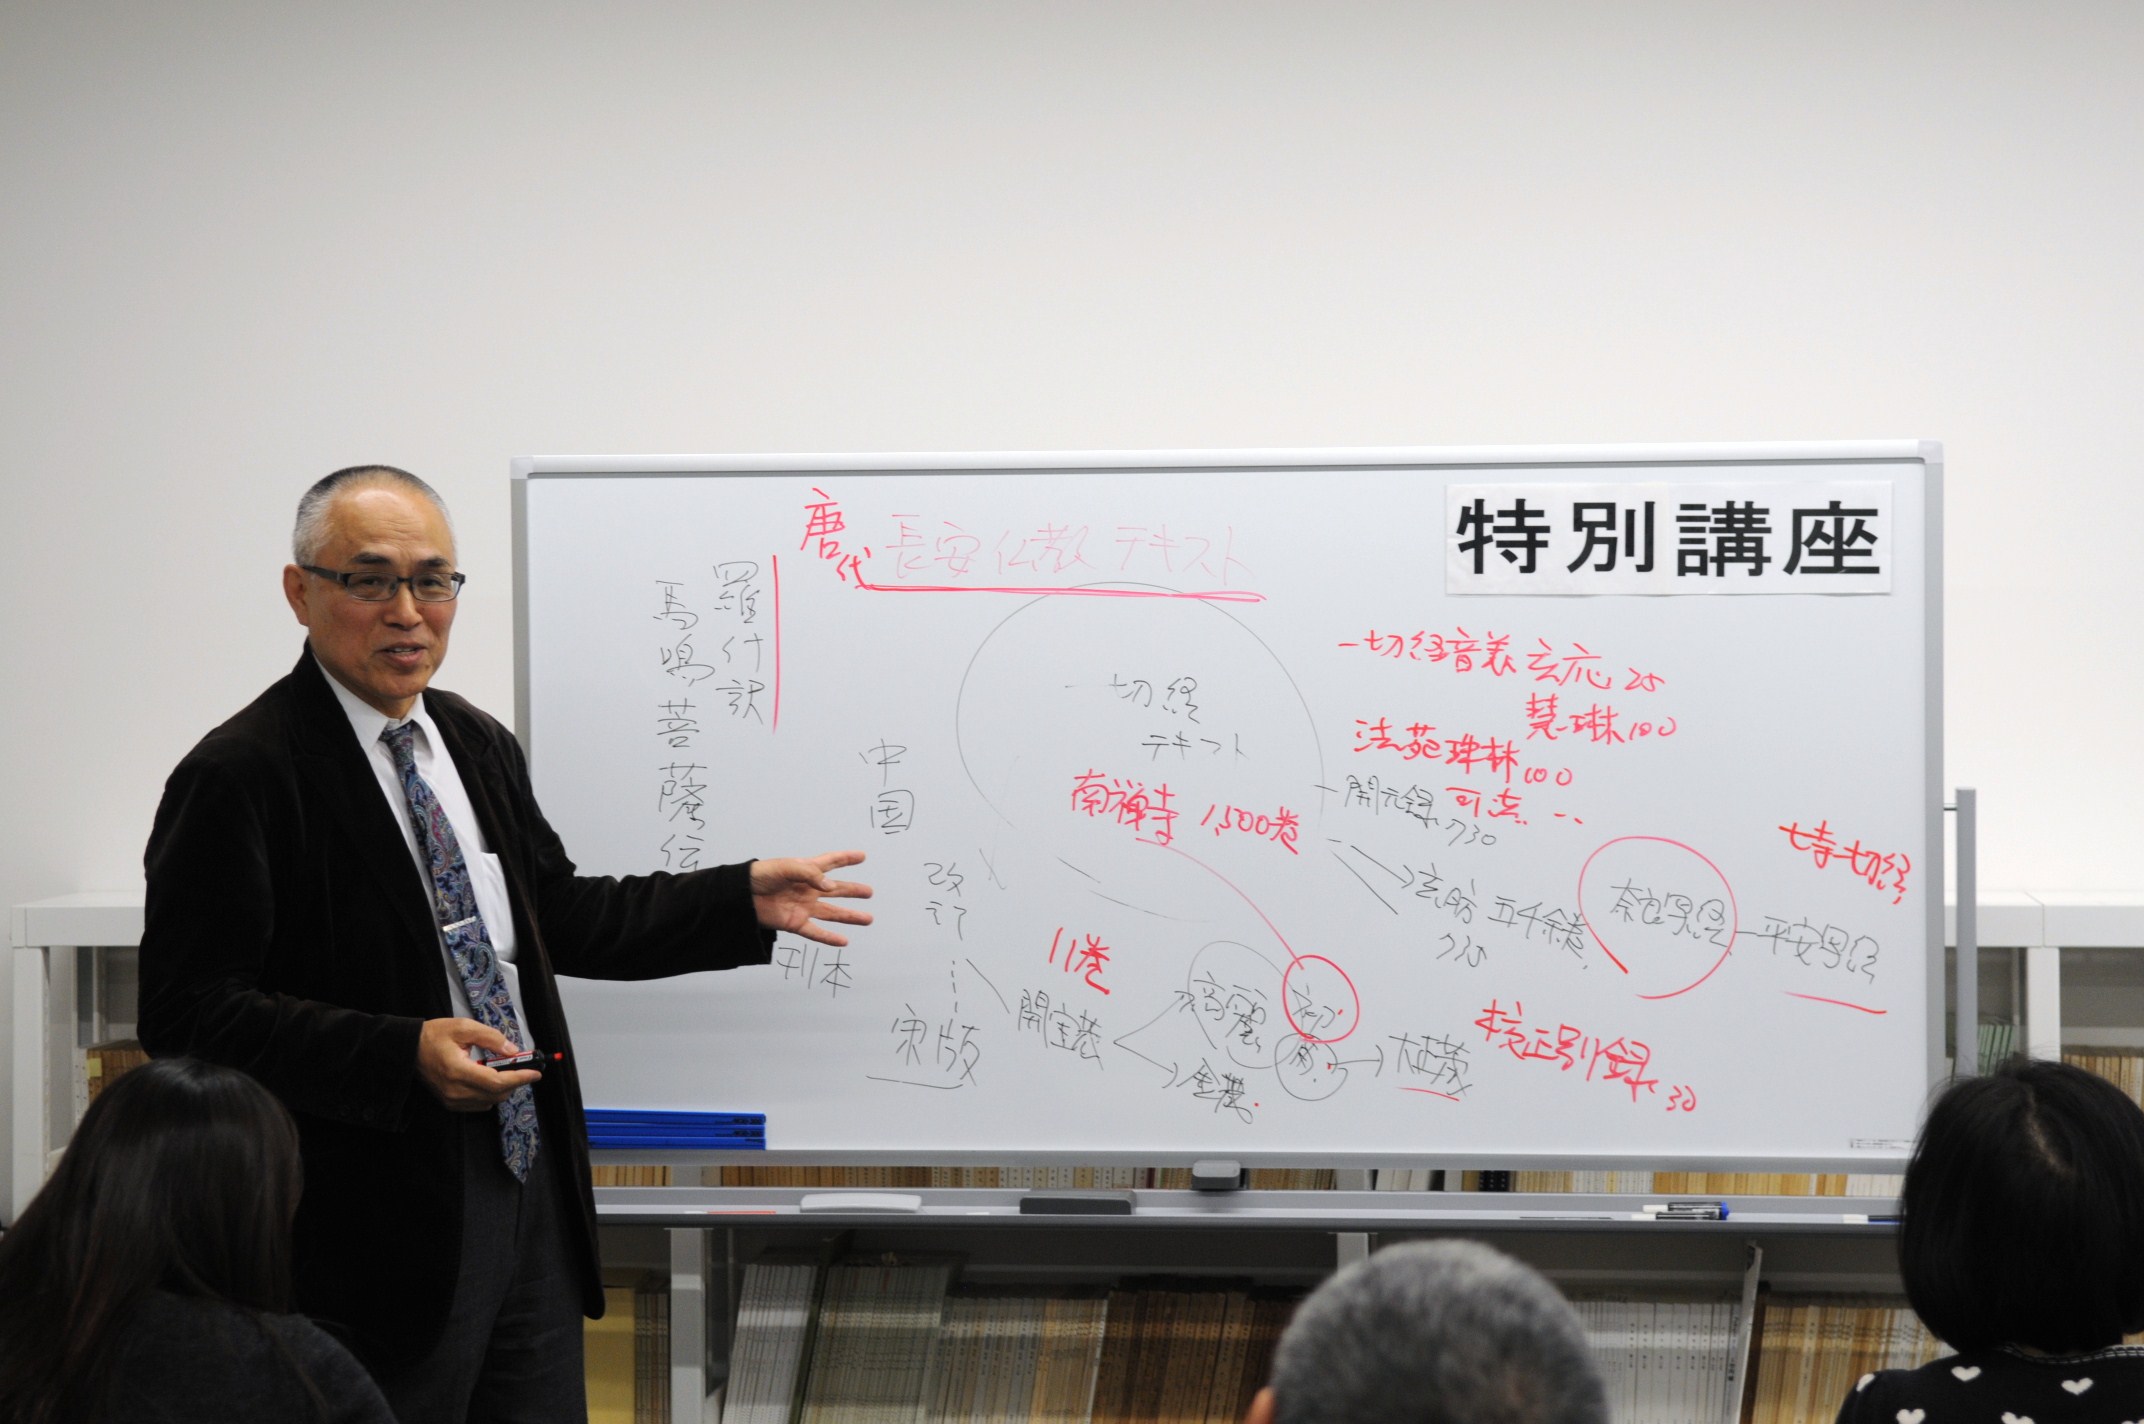 特別講座
唐代 長安仏教テキスト
羅什訳
馬鳴菩薩伝
一切経
テキスト
一切経音義 玄応 25
慧琳 100
法苑珠林 100
可洪 ‥
開元録
730
南禅寺 1,500巻
玄昉 五千余巻
735
奈良写経 ― 平安写経
七寺一切経
中国
改訂
刊本
宋版
11巻
開宝蔵
高麗
初
再
金蔵
大正蔵
校正別録 30